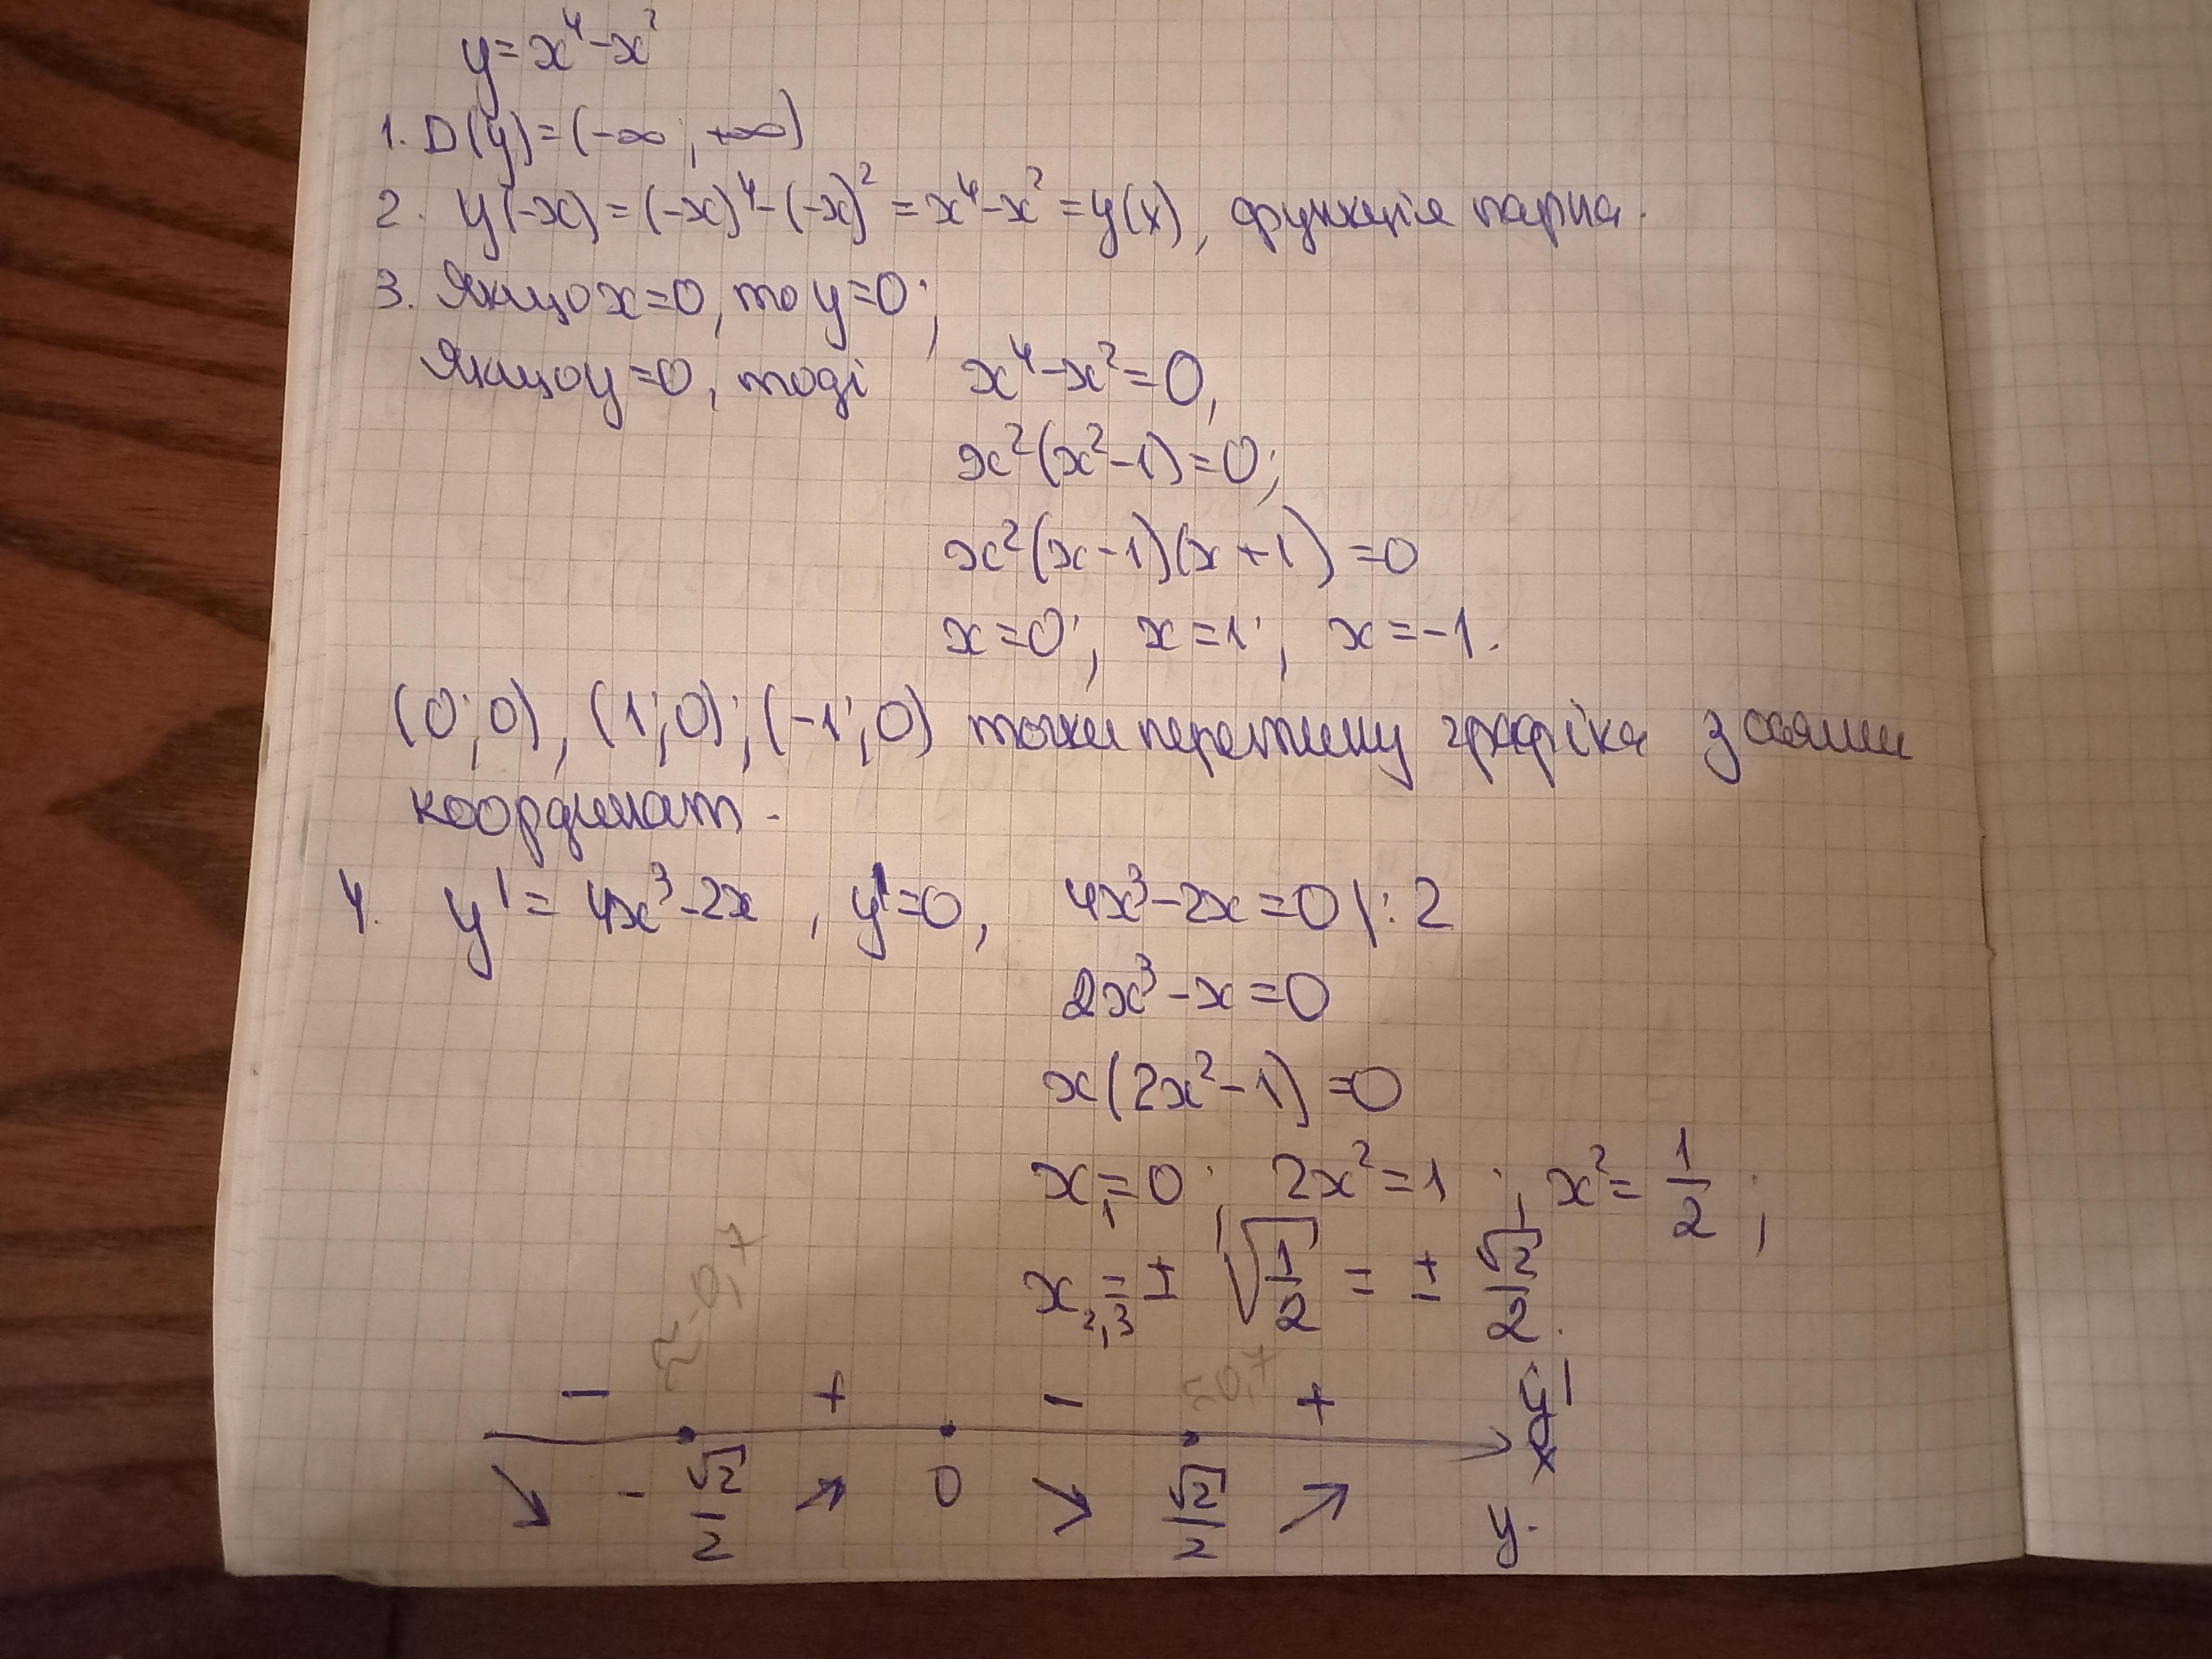 y=x⁴-x²
1. D(y)=(-∞; +∞)
2. y(-x)=(-x)⁴-(-x)²=x⁴-x²=y(x), функція парна.
3. Якщо x=0, то y=0;
Якщо y=0, тоді x⁴-x²=0,
x²(x²-1)=0;
x²(x-1)(x+1)=0
x=0; x=1; x=-1.
(0;0), (1;0); (-1;0) точки перетину графіка з осями
координат.
4. y'=4x³-2x, y'=0, 4x³-2x=0 |:2
2x³-x=0
x(2x²-1)=0
x₁=0; 2x²=1; x²=1/2;
x₂,₃=±√(1/2)=±√2/2.
≈-0,7 ≈0,7
- + - + y'
x
-√2/2 0 √2/2 y.